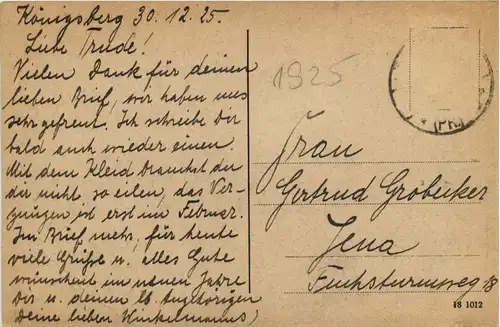 Königsberg 30.12.25.
Liebe Trude!
Vielen Dank für deinen
lieben Brief, wir haben uns
sehr gefreut. Ich schreibe dir
bald auch wieder einen.
Mit dem Kleid brauchst du
dir nicht so eilen, das Ver-
gnügen ist erst im Februar.
Im Brief mehr, für heute
viele Grüße u. alles Gute
wünschen im neuen Jahre
dir u. deinen lb. Angehörigen
Deine lieben Winkelmanns
1925
* (PR.)
Frau
Gertrud Grobecker
Jena
Fuchsturmweg 18
18 1012